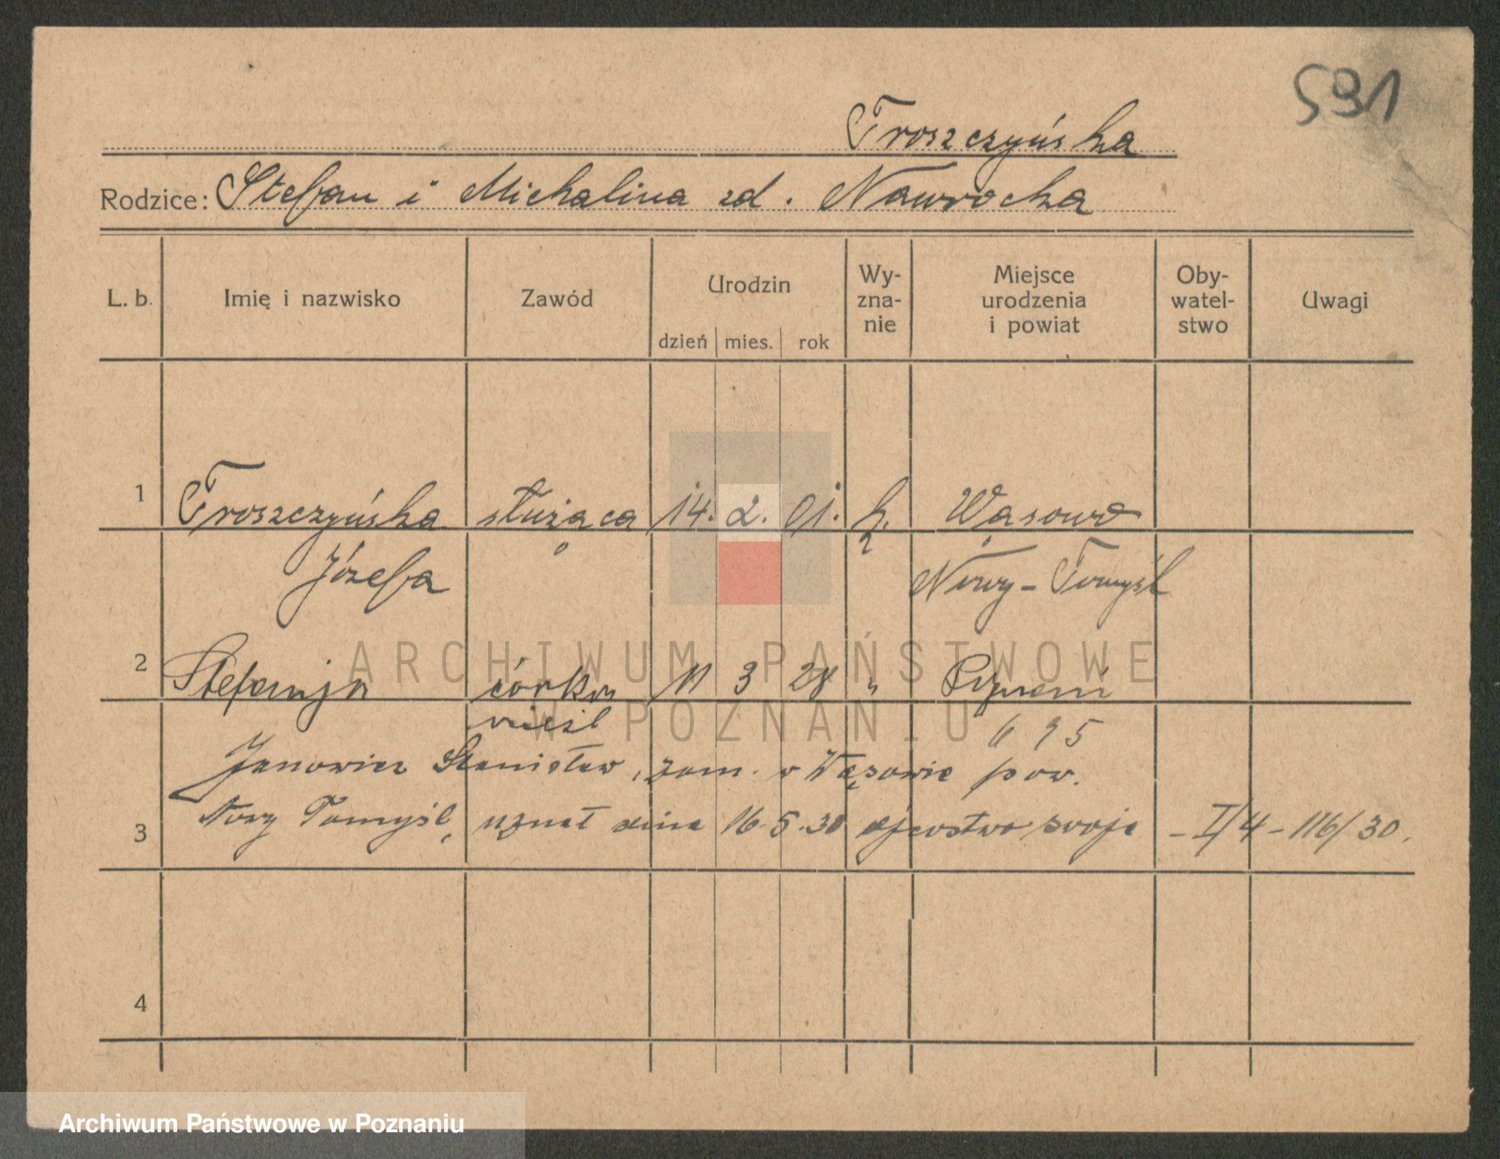 591
Troszczyńska
Rodzice: Stefan i Michalina zd. Nawrocka
L. b. Imię i nazwisko Zawód Urodzin dzień mies. rok Wy-zna-nie Miejsce urodzenia i powiat Oby-watel-stwo Uwagi
1 Troszczyńska służąca 14. 2. 01. k. Wąsowo
Józefa Nowy-Tomyśl
ARCHIWUM PAŃSTWOWE
2 Stefanja córka 11 3 28 " Poznań
W POZNANIU
nieśl 695
Janowicz Stanisław, zam. w Wąsowie pow.
3 Nowy Tomyśl, uznał dnia 16.5.30 ojcostwo swoje - I/4 - 116/30.
4
Archiwum Państwowe w Poznaniu